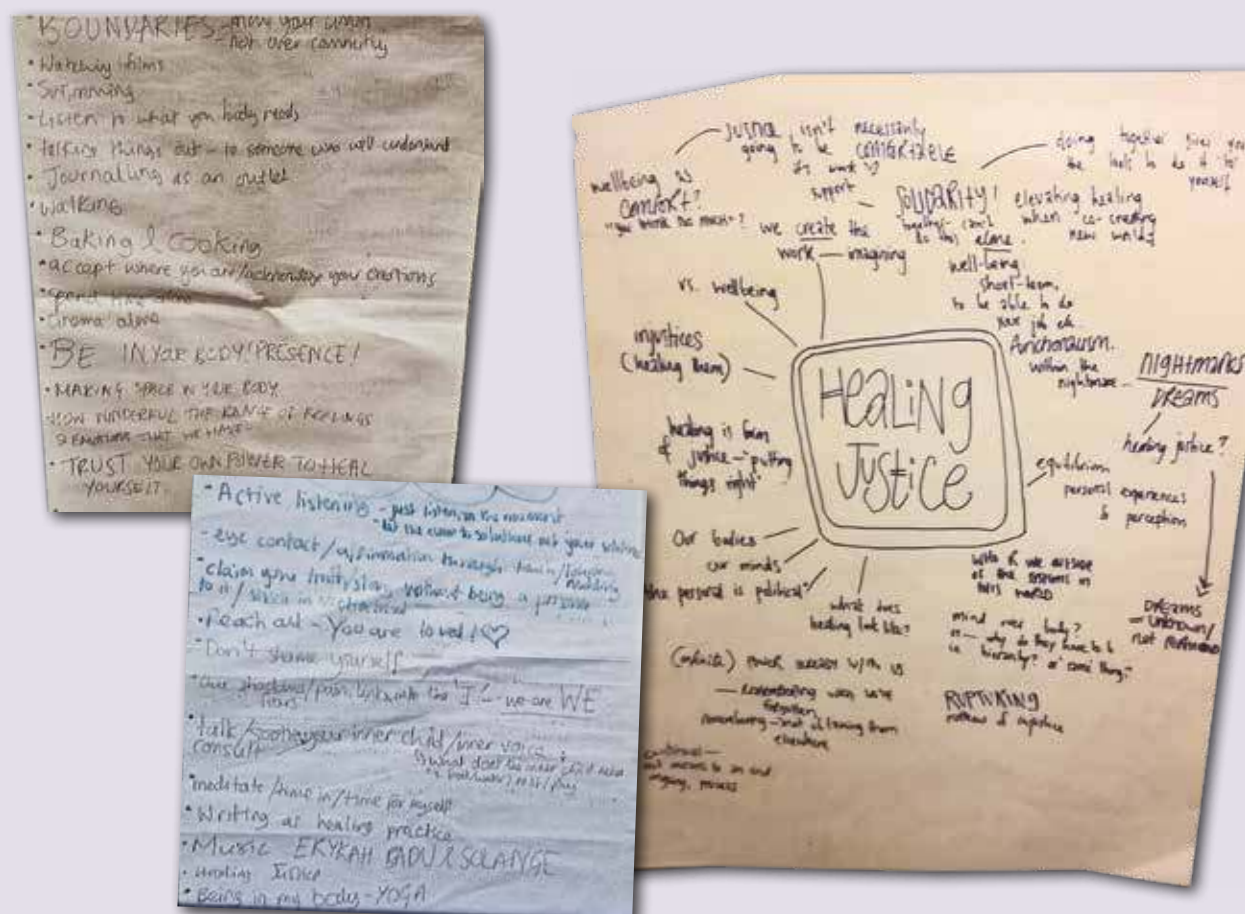 BOUNDARIES - know your limits
not over commiting
• Watching films
• Swimming
• Listen to what you body needs
• talking things out - to someone who will understand
• Journalling as an outlet
• Walking
• Baking & Cooking
• accept where you are/acknowledge your emotions
• Spend time alone
• Cinema alone
• BE IN YOUR BODY! PRESENCE!
• MAKING SPACE IN YOUR BODY
HOW WONDERFUL THE RANGE OF FEELINGS
& EMOTIONS THAT WE HAVE
• TRUST YOUR OWN POWER TO HEAL
YOURSELF.
• Active listening - just listen in the movement
- eye contact/affirmation through
• claim your truth/story without being a prisoner
to it
• Reach out - You are loved! ♡
• Don't shame yourself
the "I" - we are WE
• talk/soothe your inner child/inner voice
consult
what does the inner child need
• meditate/time in/time for myself
• Writing as healing practice
• Music EKYKAH BADU & SOLANGE
• Healing Justice
• Being in my body - YOGA
JUSTICE isn't necessarily
going to be COMFORTABLE
it's work
support
wellbeing is
COMFORT?
doing together gives you
the tools to do it for
yourself
SOLIDARITY!
together - can't
do this alone.
elevating healing
when co-creating
new worlds
we create the
work - imagining
well-being
short-term.
to be able to do
your job etc.
vs. wellbeing
injustices
(healing them)
HEALING
JUSTICE
within the
nightmare -
NIGHTMARES
DREAMS
healing justice?
healing is form
of justice - "putting
things right"
equilibrium
personal experiences
& perception
Our bodies
our minds
"the personal is political"
what does
healing look like?
with & we outside
of the systems in
this world
mind over body?
or - why do they have to be
in hierarchy? or same thing?
DREAMS
= unknown/
not
(infinite) power already with us
- Remembering what we've
forgotten
remembering - not it coming from
elsewhere
RUPTURING
continual -
not means to an end
ongoing, process